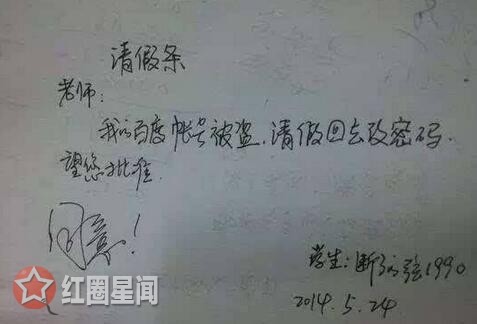 请假条
老师：
我的百度帐号被盗，请假回去改密码．
望您批准．
同意！
学生：断的弦1990
2014.5.24
红圈星闻